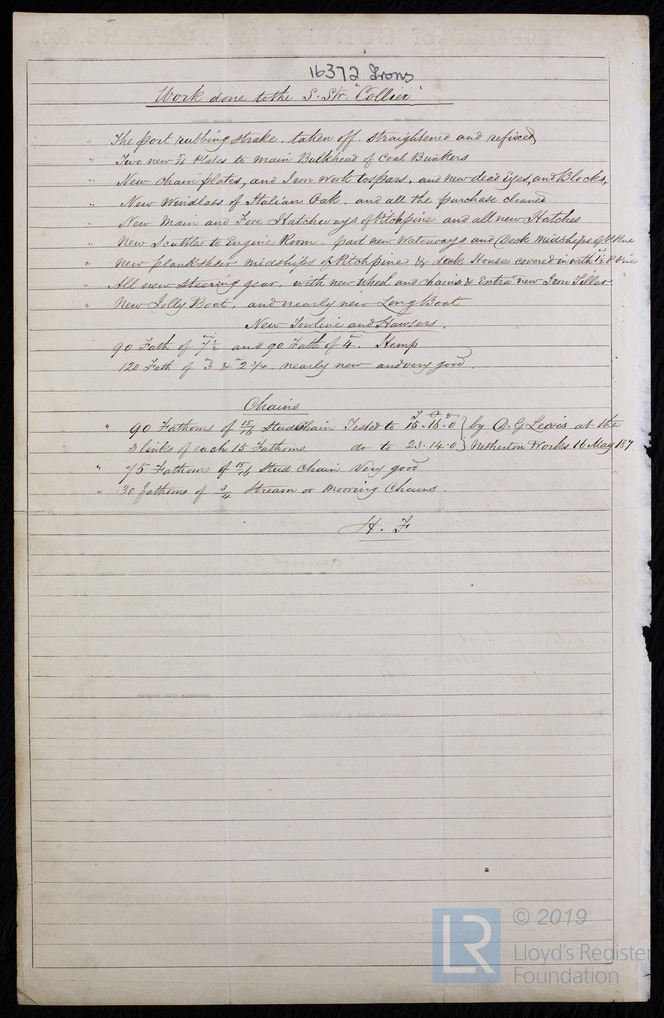 16372 Irons
Work done to the S. Str. "Collier"
" The port rubbing strake taken off straightened and refixed
" Two new Plates to main Bulkhead of Coal Bunkers
" New chain plates, and Iron work to spars, and new dead Eyes, and Blocks,
" New Windlass of Italian Oak, and all the purchase cleaned
" New Main and Fore Hatchways of Pitchpine and all new Hatches
" New Scuttle to Engine Room - part new waterways and Deck midships of P. Pine
" New planksheer midships of Pitchpine & deck House covered in with P. Pine
" All new Steering gear, with new Wheel and chains & Extra new Iron Tiller
" New Jolly Boat, and nearly new Long Boat
New Towline and Hawsers.
90 Fath of 7½ and 90 Fath of 4. Hemp
120 Fath of 3 & 2¾. nearly new and very good.
Chains
" 90 Fathoms of 15/16 Stud Chain Tested to 15.15.0 } by A. G. Lewis at the
3 links of each 15 Fathoms do to 23.14.0 } Netherton Works 16 May 187
" 75 Fathoms of 15/16 Stud Chain Very good
" 30 fathoms of 3/4 Stream or Mooring Chains.
H. F
LR © 2019
Lloyd's Register
Foundation